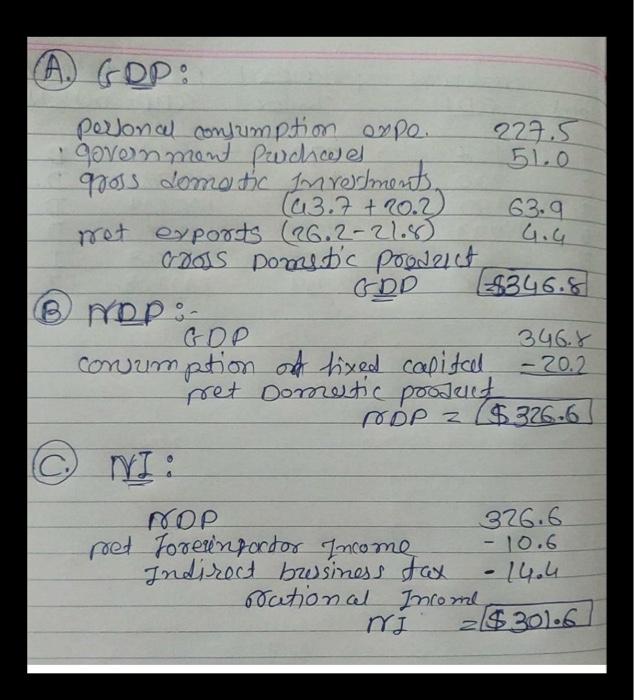 A. GDP:
personal consumption expe. 227.5
government Purchases 51.0
gross domestic Investments
(43.7 + 20.2) 63.9
net exports (26.2-21.8) 4.4
Gross Domestic Product
GDP =$346.8
B NDP :-
GDP 346.8
Consumption of fixed capital -20.2
net Domestic product
NDP = $326.6
C. NI :
NDP 326.6
net Foreign factor Income -10.6
Indirect bussiness tax -14.4
National Income
NI = $301.6